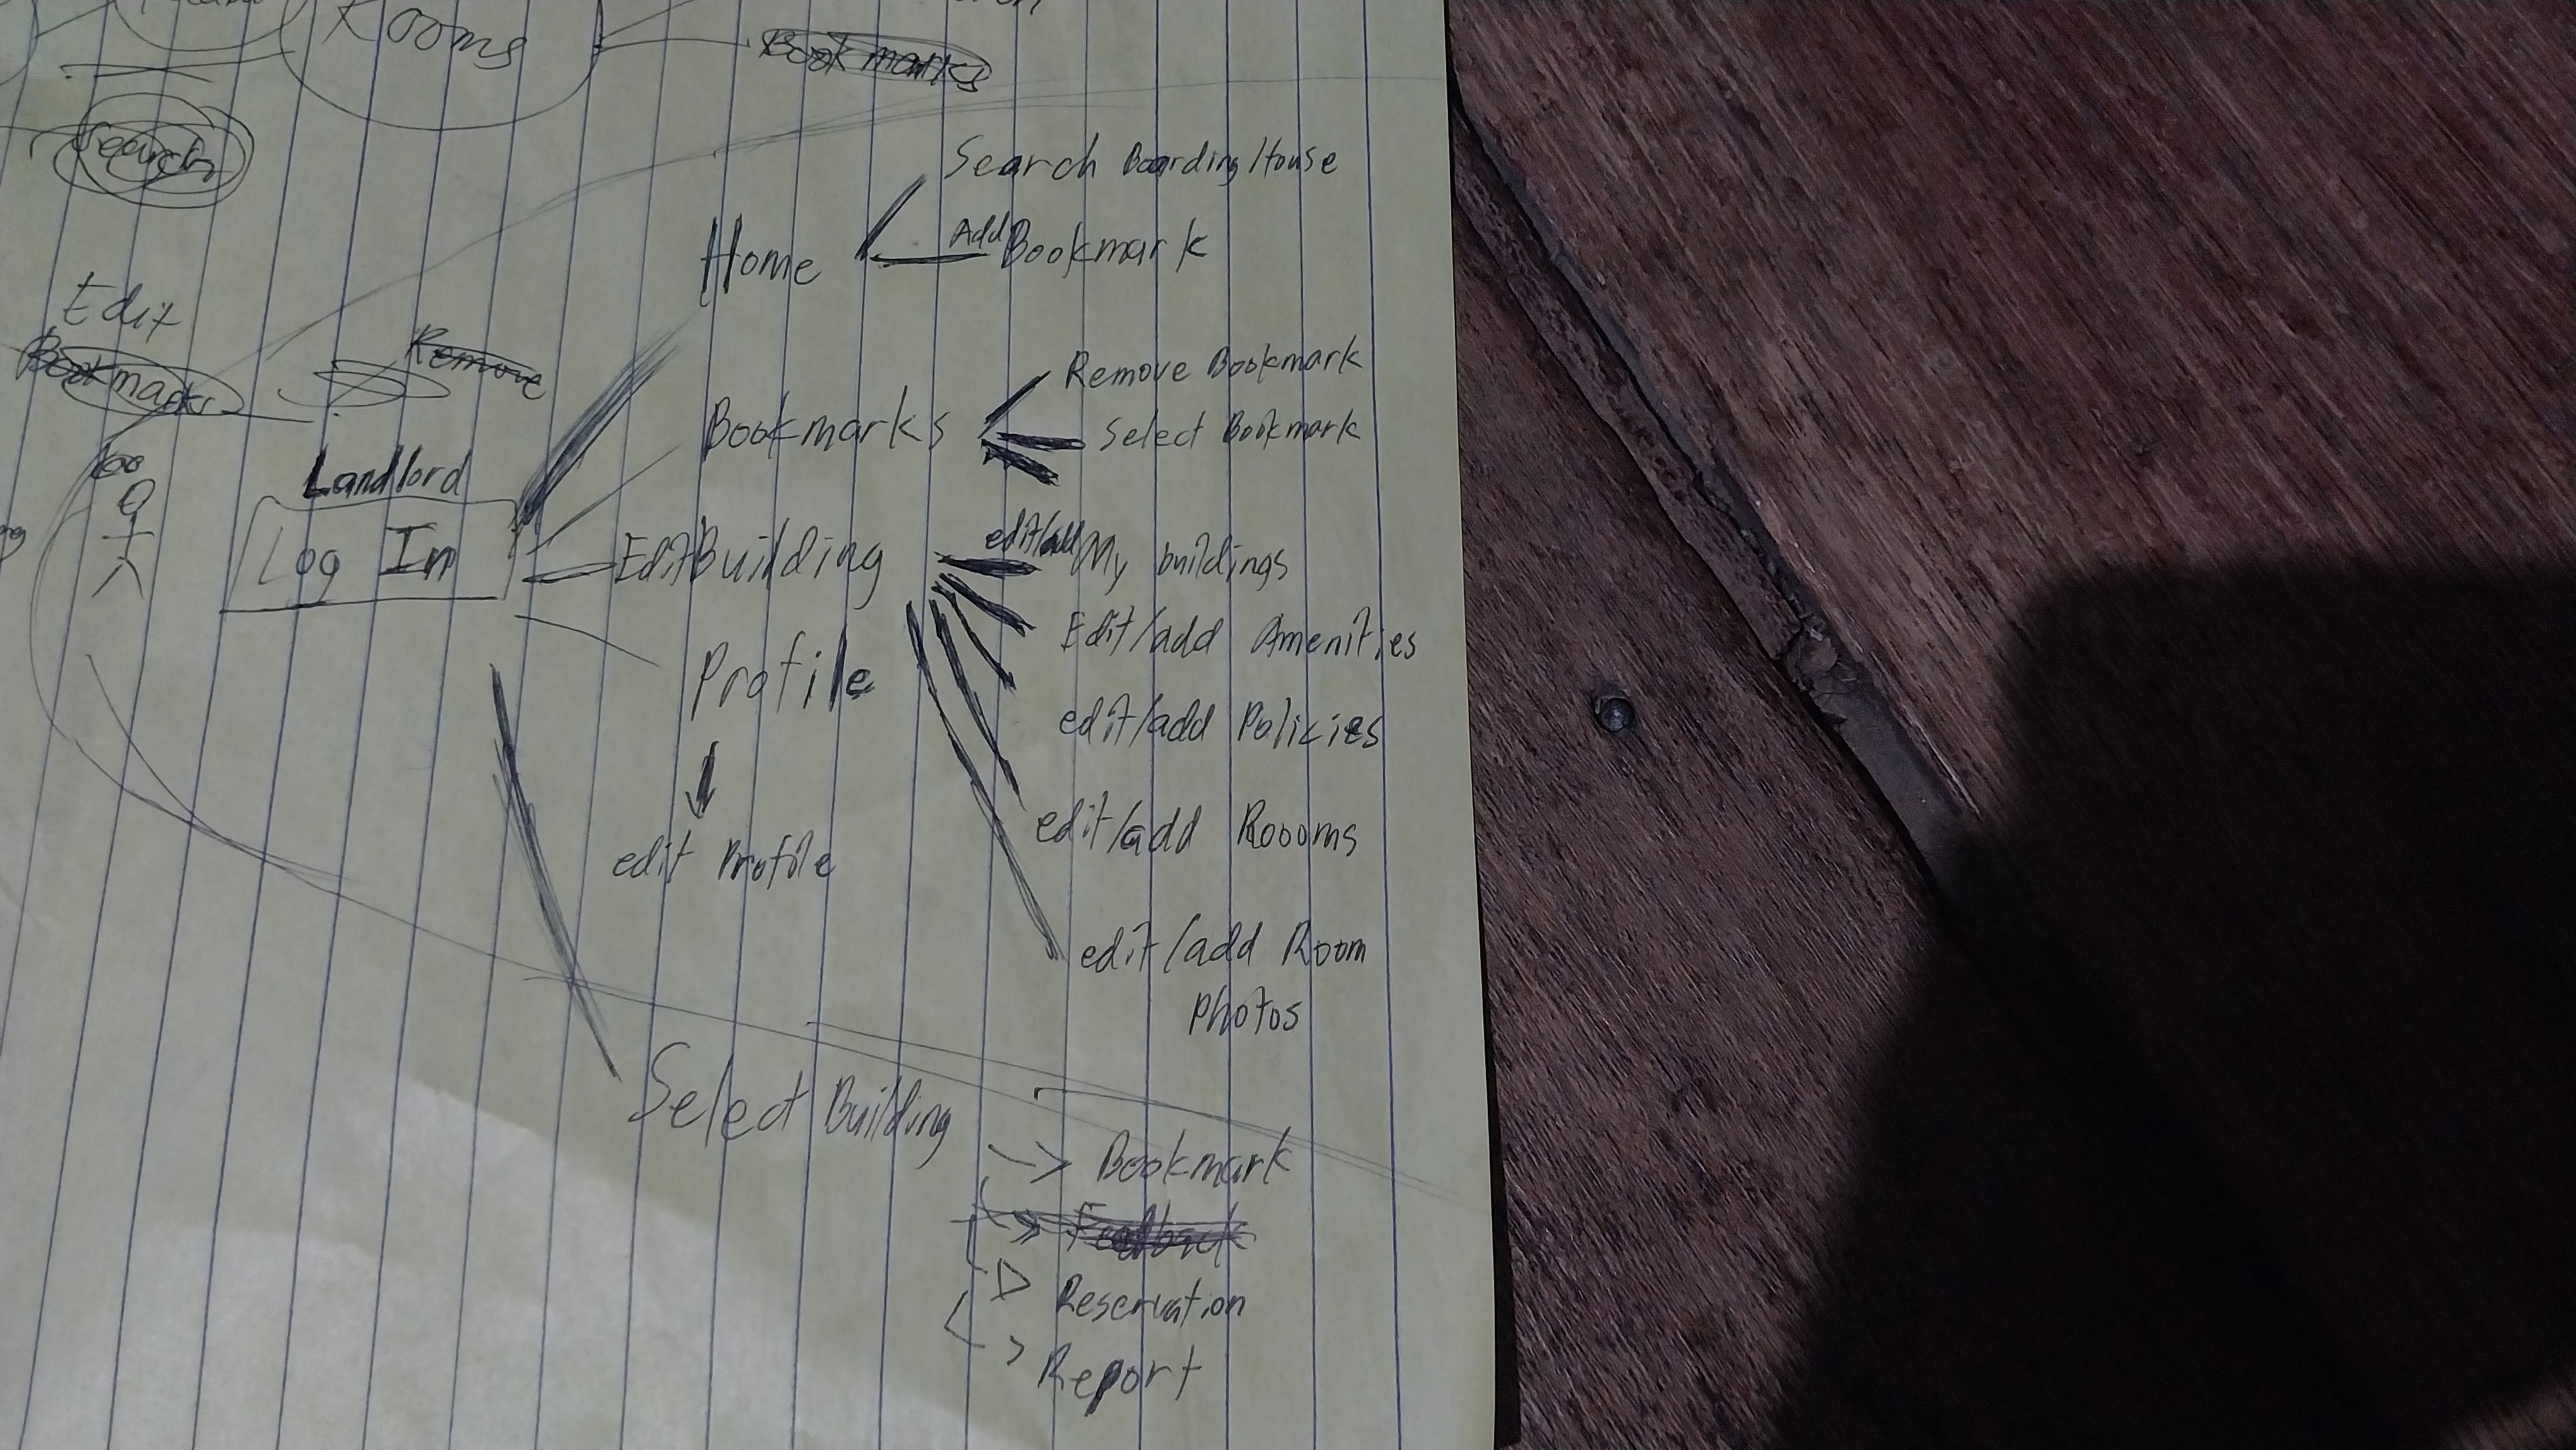 Rooms
Search
Edit
Remove
Landlord
Log In
Home
Search boarding House
Add Bookmark
Bookmarks
Remove Bookmark
Select Bookmark
Edit Building
edit/add My buildings
Edit/add Amenities
edit/add Policies
edit/add Rooms
edit/add Room
Photos
Profile
edit Profile
Select Building
Bookmark
Reservation
Report